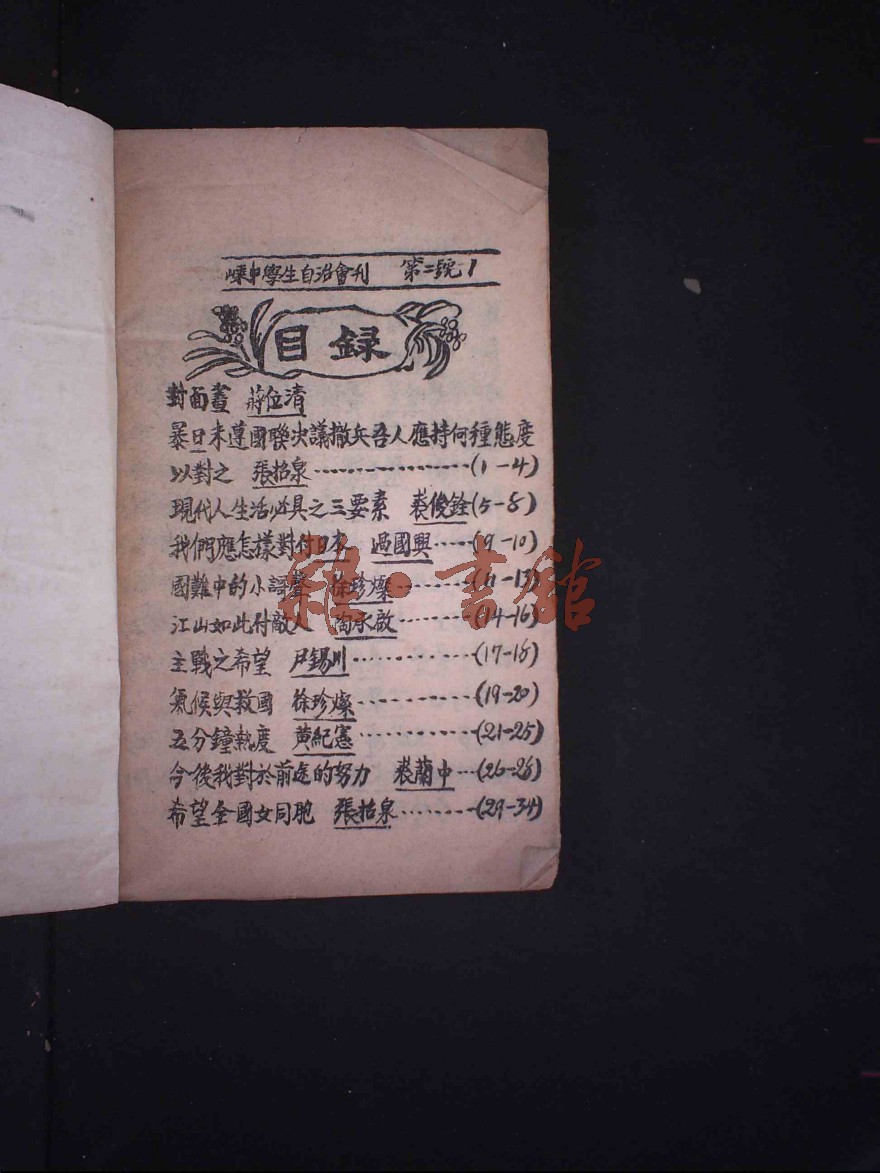 嵊中學生自治會刊 第二號 1
目錄
對面畫 蔣位清
暴日未遵國聯決議撤兵吾人應持何種態度
以對之 張招泉………………(1-4)
現代人生活必具之三要素 裘俊銓(5-8)
我們應怎樣對付日本 過國興……(9-10)
國難中的小語聲 徐珍燦………(11-13)
江山如此付敵人 陶承啟………(14-16)
主戰之希望 尹錫川…………(17-18)
氣候與救國 徐珍燦…………(19-20)
五分鐘熱度 黃紀憲…………(21-25)
今後我對於前途的努力 裘蘭中…(26-28)
希望全國女同胞 張招泉………(29-34)
雜·書館